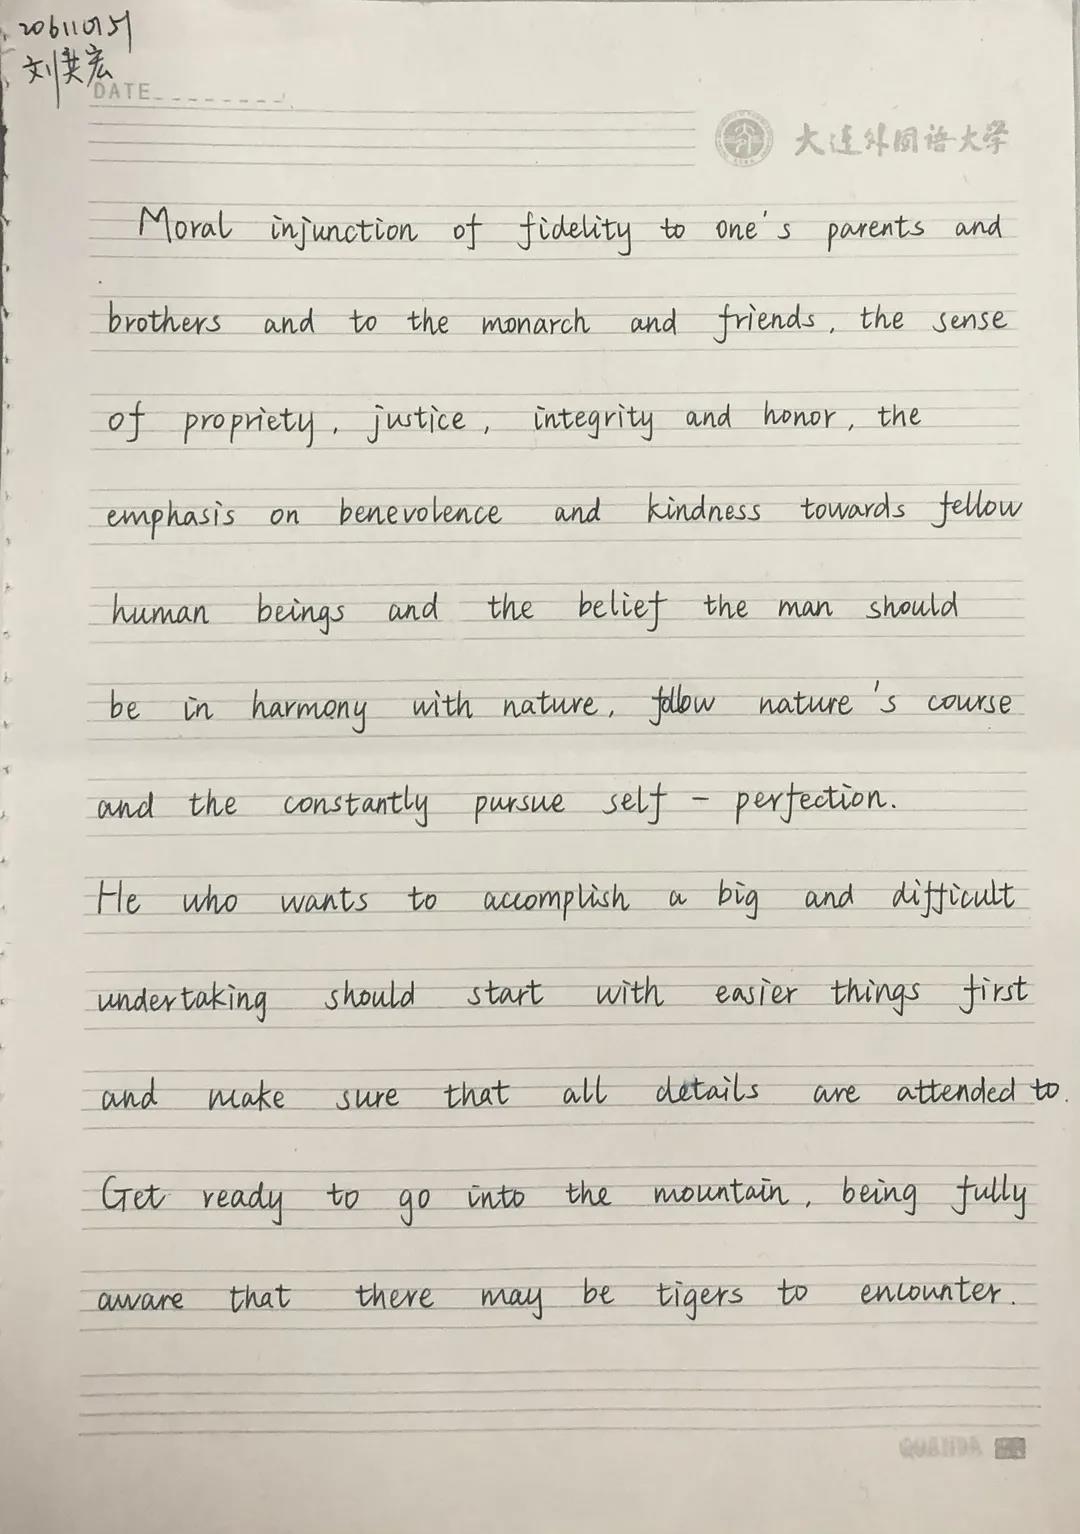 20611015
刘英宏
DATE
大连外国语大学
Moral injunction of fidelity to one's parents and
brothers and to the monarch and friends, the sense
of propriety, justice, integrity and honor, the
emphasis on benevolence and kindness towards fellow
human beings and the belief the man should
be in harmony with nature, follow nature's course
and the constantly pursue self - perfection.
He who wants to accomplish a big and difficult
undertaking should start with easier things first
and make sure that all details are attended to.
Get ready to go into the mountain, being fully
aware that there may be tigers to encounter.